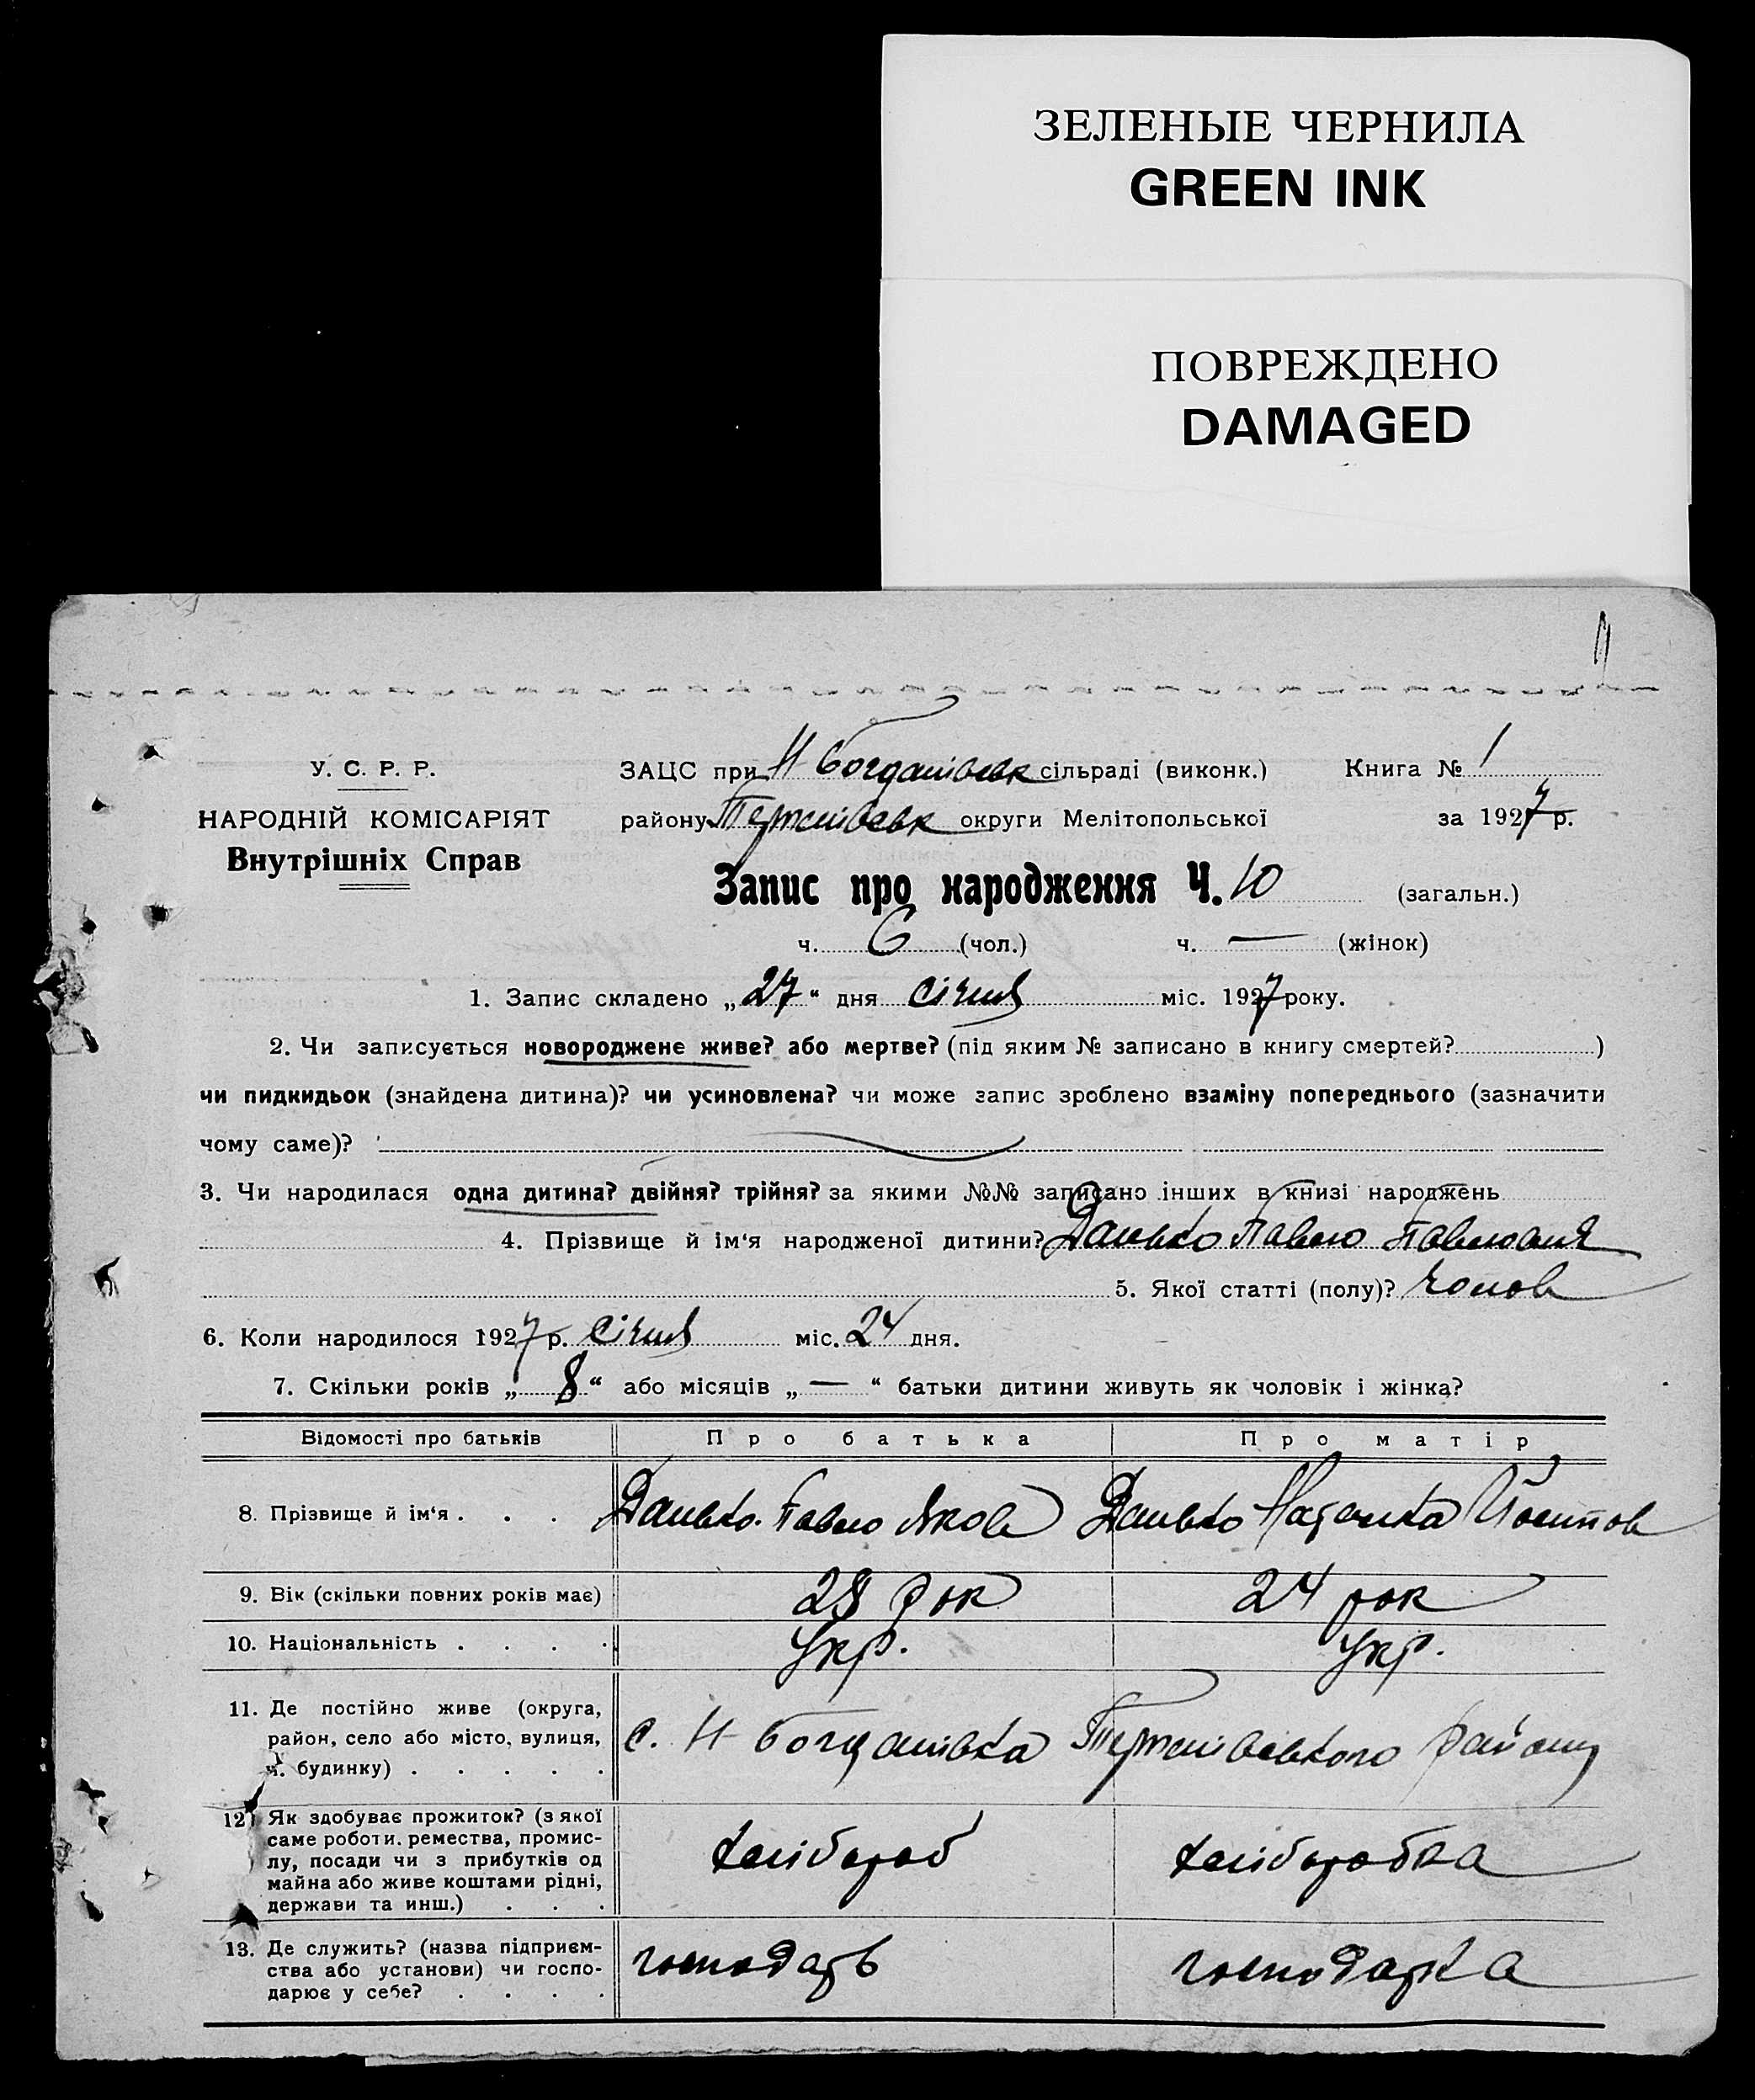 ЗЕЛЕНЫЕ ЧЕРНИЛА
GREEN INK
ПОВРЕЖДЕНО
DAMAGED
У. С. Р. Р.
НАРОДНІЙ КОМІСАРІЯТ
Внутрішніх Справ
ЗАЦС при Н Богданівськ сільраді (виконк.) Книга № 1
району округи Мелітопольської за 1927 р.
Запис про народження Ч. 10 (загальн.)
ч. 6 (чол.) ч. — (жінок)
1. Запис складено „27“ дня січня міс. 1927 року.
2. Чи записується новороджене живе? або мертве? (під яким № записано в книгу смертей? )
чи пидкидьок (знайдена дитина)? чи усиновлена? чи може запис зроблено взаміну попереднього (зазначити
чому саме)?
3. Чи народилася одна дитина? двійня? трійня? за якими №№ записано інших в книзі народжень
4. Прізвище й ім'я народженої дитини?Данько Павло Павлович
5. Якої статті (полу)? чолов
6. Коли народилося 1927 р. січня міс. 24 дня.
7. Скільки років „8“ або місяців „—“ батьки дитини живуть як чоловік і жінка?
Відомості про батьків Про батька Про матір
8. Прізвище й ім'я . . . Данько Павло Яков Данько Йосипов
9. Вік (скільки повних років має) 28 рок 24 рок
10. Національність . . . . Укр. Укр.
11. Де постійно живе (округа,
район, село або місто, вулиця,
ч. будинку) . . . . .
с. Н Богданівка району
12. Як здобуває прожиток? (з якої
саме роботи, ремества, промис-
лу, посади чи з прибутків од
майна або живе коштами рідні,
держави та инш.) . . .
хлібороб хліборобка
13. Де служить? (назва підприєм-
ства або установи) чи госпо-
дарює у себе? . . . .
господарь господарка